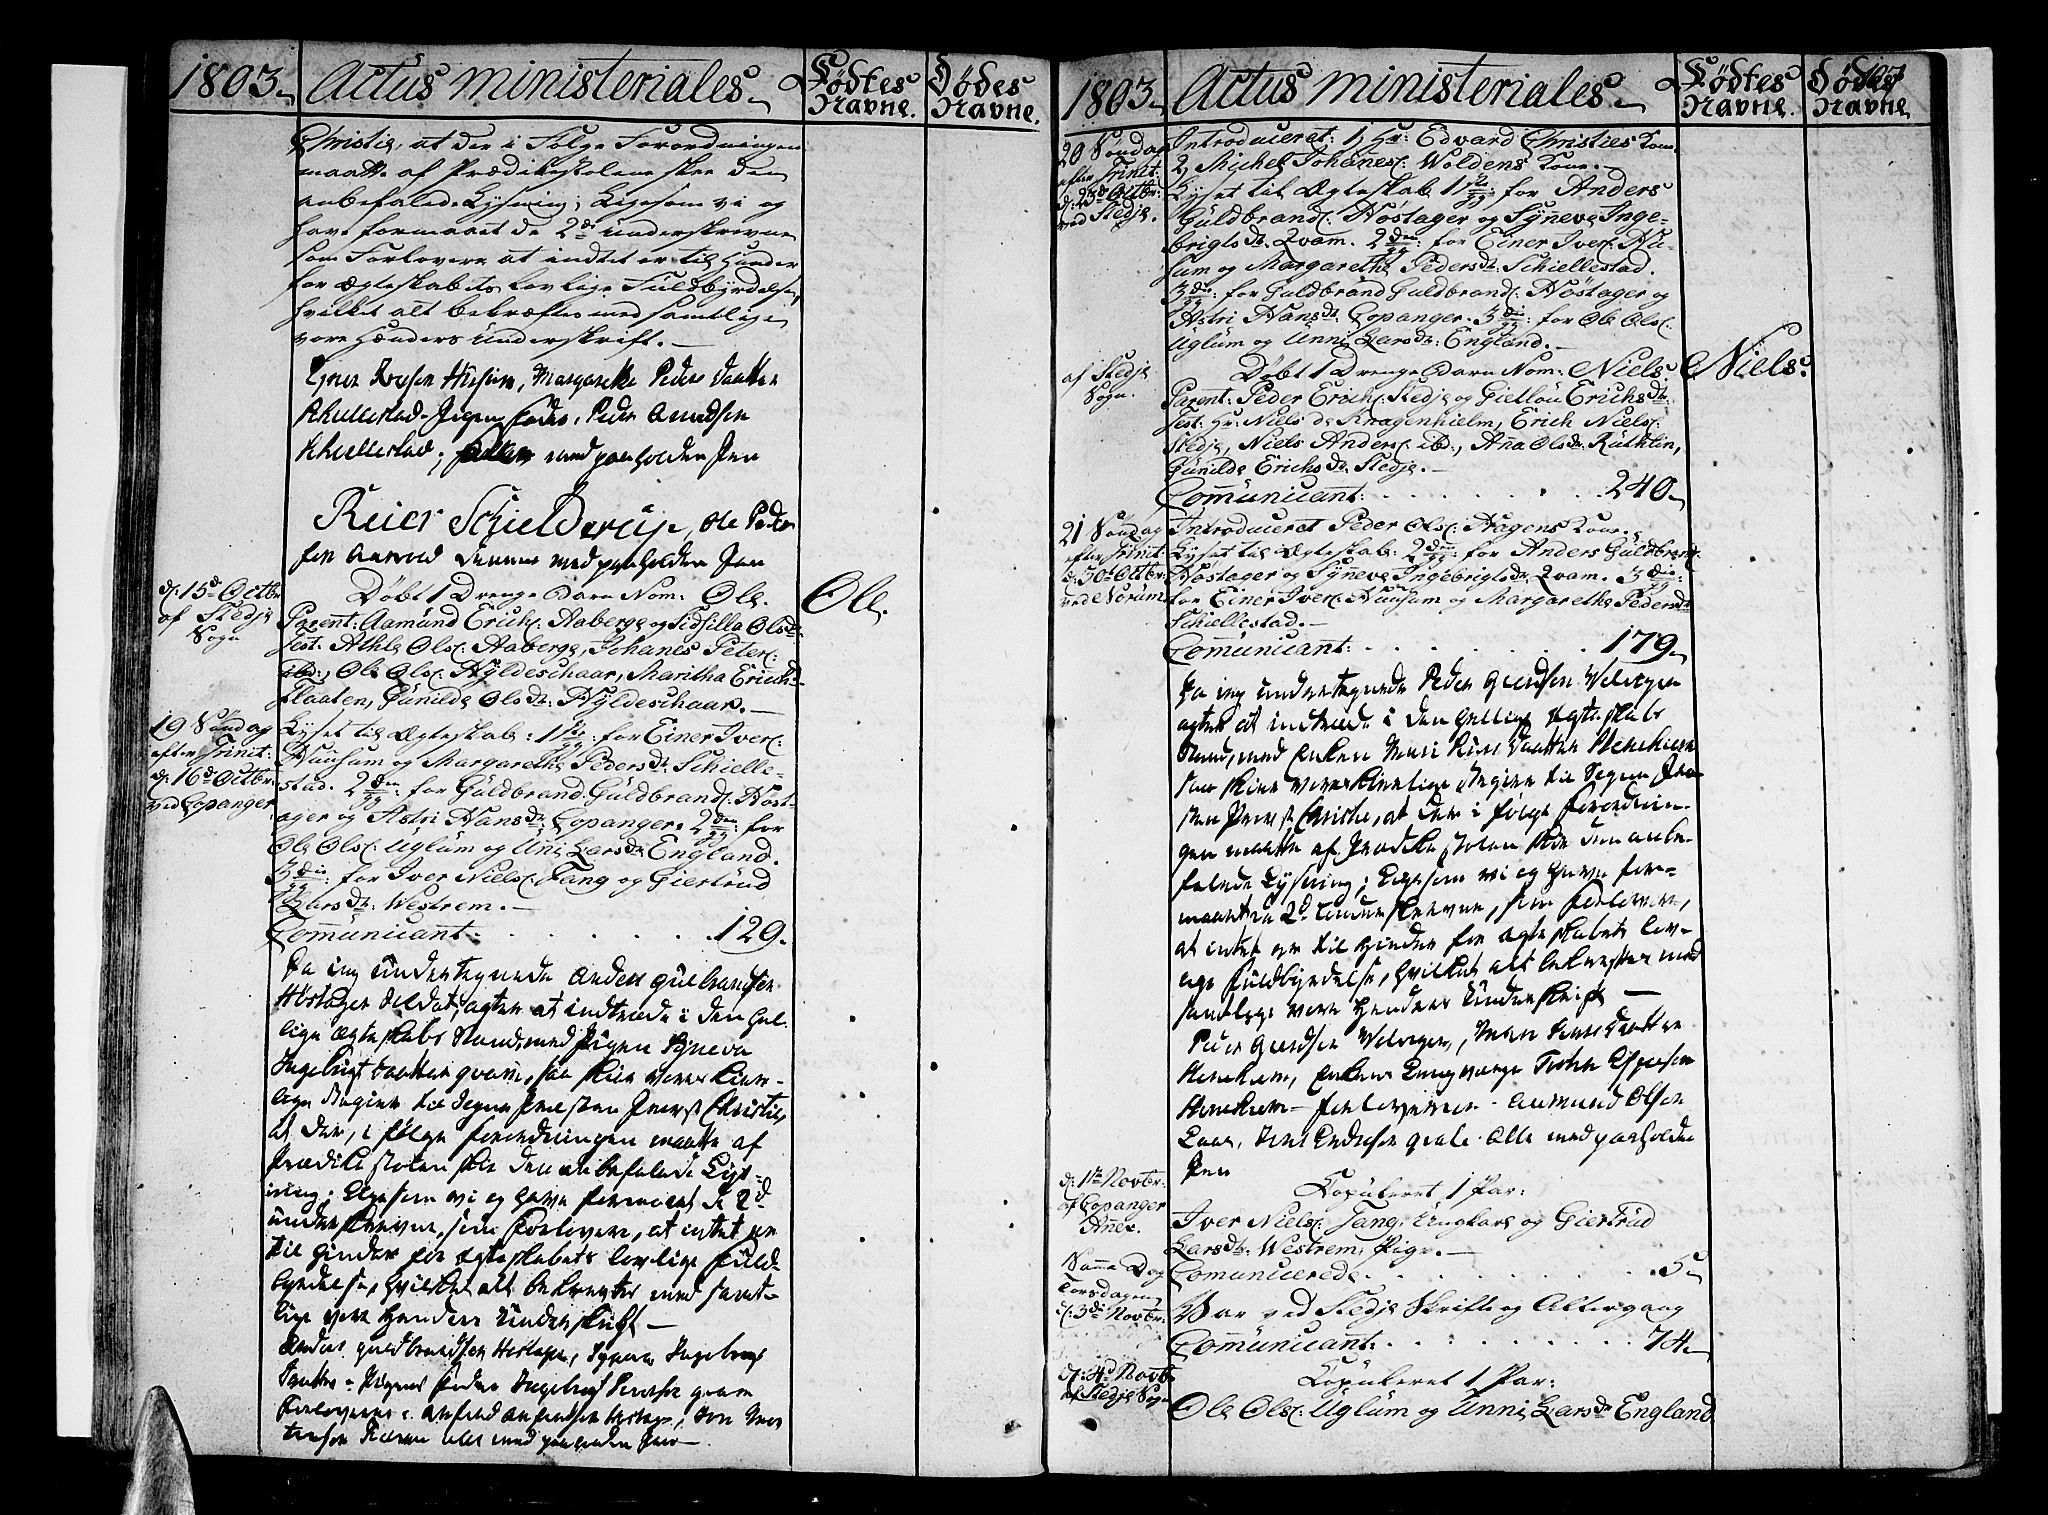 1803. Actus ministeriales. Fødtes Navne. Dødes Navne.
Christie, at der i Følge Forordningen
maatte af Prædikestolene skee den
anbefalede Lysning; Ligesom vi og
have formaaet de 2de underskrevne
som Forlovere, at indtet er til Hinder
for Ægteskabets lovlige Fuldbyrdelse,
hvilket alt bekræftes med samtlige
vore Hænders Underskrift.
Husum, Margarethe Peders Daatter
Skiellestad. Pigens Fader, Peder Amundsen
Skiellestad; med paaholden Pen
Reier Schielderup, Ole Peder
sen med paaholden Pen
d: 15de Octbr:
af Stedje
Sogn
Døbt 1 Drenge Barn Nom: Ole. Ole.
Parent: Aamund Erichs: Aaberge og Sidsilla Olsdr
Test. Athle Ols: Aaberge, Johanes Peters:
ibd:, Ole Ols: Hyldeschaar, Maritha Erichsd:
Flaaten, Gunilde Olsdr: Hyldeschaar.
19 Søndag
efter Trinit:
d: 16de Octbr:
ved Copanger
Lyset til Ægteskab: 1ste gg: for Einer Ivers:
Huusum og Margarethe Pedersdr: Schielle-
stad. 2den gg: for Guldbrand Guldbrands: Høst-
ager og Astri Hansdr: Copanger. 2den gg: for
Ole Ols: Uglum og Uñi Larsdr: England.
3die gg: for Iver Niels: Fang og Giertrud
Larsdr: Westrem.
Com̃unicant: 129.
Da ieg undertegnede Anders Gulbrandsen
Høstager Soldat, agter at indtræde i den hel-
lige Ægteskabs Stand, med Pigen Syneva
Ingebrigts Daatter Qvam, saa skeer vores kier-
lige Begier til Sogne Præsten Provst Christie,
at der, i følge forordningen maatte af
Prædikestolen skee den anbefalede Lys-
ning; Ligesom vi og have formaaet de 2de
underskrevne, som Forlovere, at intet er
til hinder for Ægteskabets lovlige fuld-
byrdelse, hvilket alt bekræftes med samt-
lige vore Hænders Underskrift
Anders Guldbrandsen Høstager, Syneva Ingebrigts
Daatter. Pigens Fader Ingebrigt Qvam
Forloverne: Høstager,
med paaholden Pen.
1803. Actus ministeriales. Fødtes Navne. Dødes Navne. 107
20 Søndag
efter Trinit:
d: 23de Octbr:
ved Stedje.
Introduceret: 1, Hr: Edvard Christies Kone.
2, Michel Johanes: Woldens Kone.
Lyset til Ægteskab 1ste gg: for Anders
Guldbrands: Høstager og Syneve Inge-
brigtsdr: Qvam. 2den gg: for Einer Ivers: Hu-
sum og Margarethe Pedersdr: Schiellestad.
3die gg: for Guldbrand Guldbrands: Høstager og
Astri Hansdr: Copanger. 3die gg: for Ole Ols:
Uglum og Unni Larsdr: England.
af Stedje
Sogn.
Døbt 1 Drenge Barn Nom: Niels. Niels.
Parent: Peder Erichs: Stedje og Giertlou Erichsdr:
Test: Hr: Niels de Knagenhielm, Erich Niels:
Stedje, Niels Anders: ibd:, Aña Olsdr: Ruthlin,
Gunilde Erichsdr: Stedje.
Com̃unicant: 240.
21 Søndag
efter Trinit:
d: 30te Octbr:
ved Norum.
Introduceret Peder Ols: Hagens Kone.
Lyset til Ægteskab: 2den gg: for Anders Guldbrands:
Høstager og Syneve Ingebrigtsdr: Qvam. 3die gg:
for Einer Ivers: Huusum og Margarethe Pedersdr:
Schiellestad.
Com̃unicant: 179.
Da ieg undertegnede Peder
agter at indtræde i den hellige Ægteskabs
Stand, med Enken Mari Daatter Henekiem
saa skeer vores kierlige Begier til Sogne Præ-
sten Provst Christie, at der i følge forordnin-
gen maatte af Prædikestolen skee den anbe-
falede Lysning; Ligesom vi og have for-
maaet de 2de underskrevne, som forlovere,
at intet er til hinder for Ægteskabets lov-
lige fuldbyrdelse, hvilket alt bekræftes med
samtlige vore Hænders Underskrift
Peder Mari Daatter
Henekiem,
Henekiem forloverne Aamund Olsen
Alle med paaholden
Pen
d: 1ste Novbr:
af Copanger
Anex.
Copuleret 1 Par:
Iver Niels: Fang, Ungkarl og Giertrud
Larsdr: Westrem, Pige.
Sam̃e Dag
Com̃unicerede 5
Torsdagen
d: 3die Novbr:
Var ved Stedje Skrifte og Altergang
Com̃unicant: 74.
d: 4de Novbr:
af Stedje Sogn
Copuleret 1 Par:
Ole Ols: Uglum og Unni Larsdr England